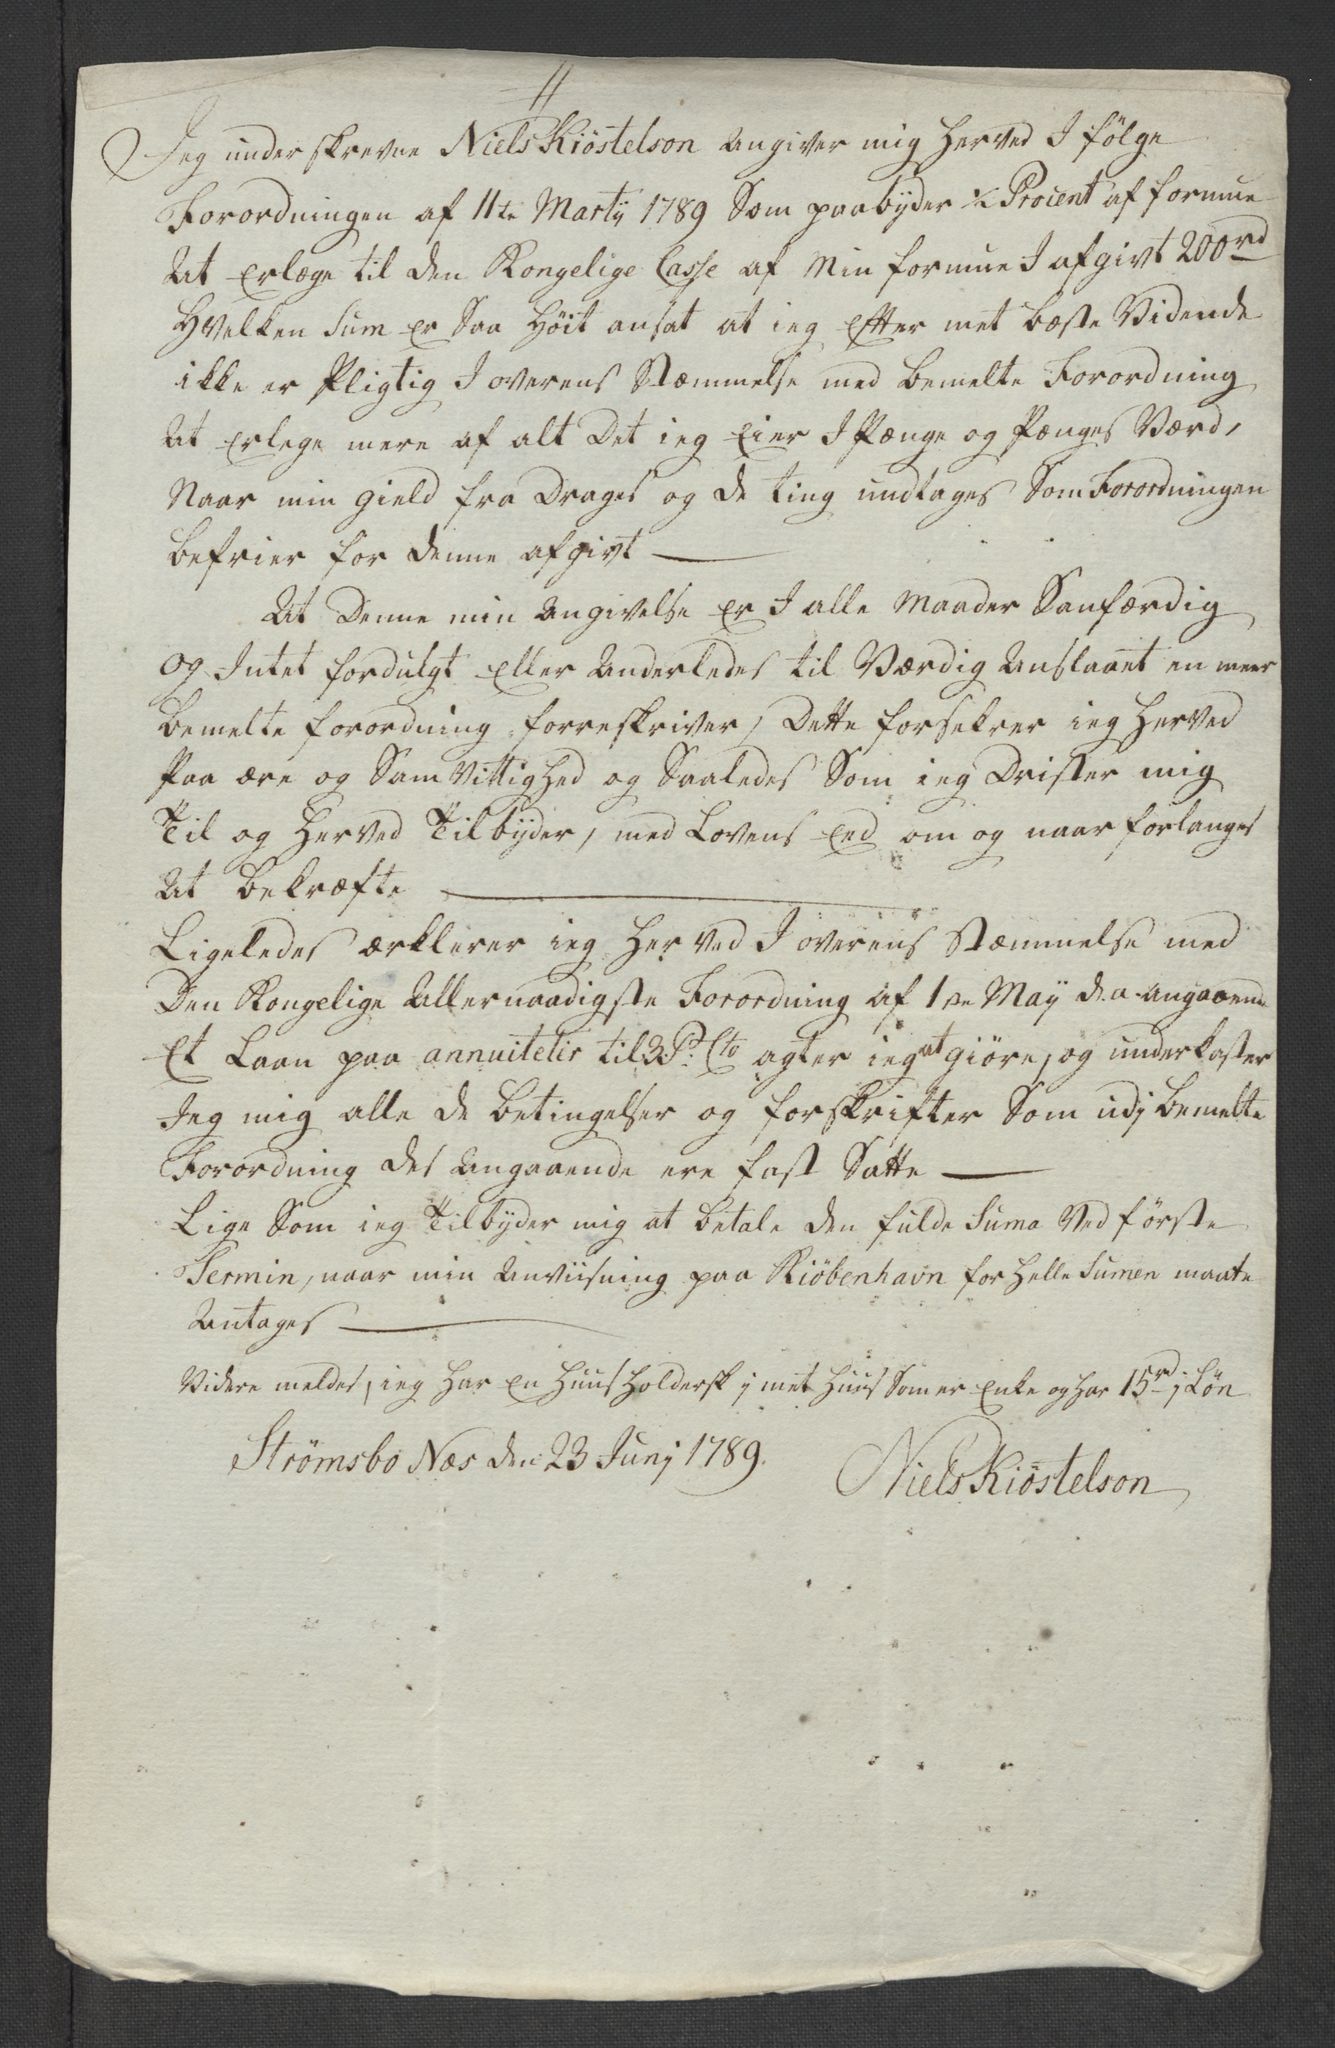 11
Jeg under skrevne Niels Kiöstelson Angiver mig herved I fölge
Forordningen af 11te Martij 1789 Som paabyder ¼ Procent af formue
At Erlæge til den Kongelige Casse af Min formue I afgivt 200 rd
Hvelken Sum er Saa Höit ansat at ieg Efter met bæste Vidende
ikke er Pligtig I overens Stæmmelse med bemelte Forordning
At Erlege mere af alt Det ieg Eier I Pænge og Pænges Værd,
Naar min Gield fra Drages og de ting undtages Som Forordningen
befrier for denne afgivt
At Denne min Angivelse er I alle Maader Sanfærdig
og Intet fordulgt Eller Anderledes til Værdig Anslaaet en meer
bemelte forordning forreskriver, Dette forsekrer ieg herved
Paa ære og Sam Vittighed og Saaledes Som ieg Drister mig
Til og herved Tilbyder, med Lovens Eed om og naar forlanges
At bekræfte
Ligeledes ærklerer ieg her ved I overens Stæmmelse med
Den Kongelige Allernaadigste Forordning af 1ste Maij d. a. angaaende
Et Laan paa annuitetis til 3 P. Cto agter ieg at giöre, og underkaster
Jeg mig alle de betingelser og forskrifter Som udj bemelte
Forordning des Angaaende ere fast Satte
Lige Som ieg Tilbyder mig at betale den fulde Suma Ved förste
Termin, naar min Anviisning paa Kiöbenhavn for helle Sumen maate
Antages
Videre meldes, ieg har en huusholdersk j met huus Som er Enke og har 15 rd j Lön
Strömsbo Næs den 23 Junj 1789.
Niels Kiöstelson